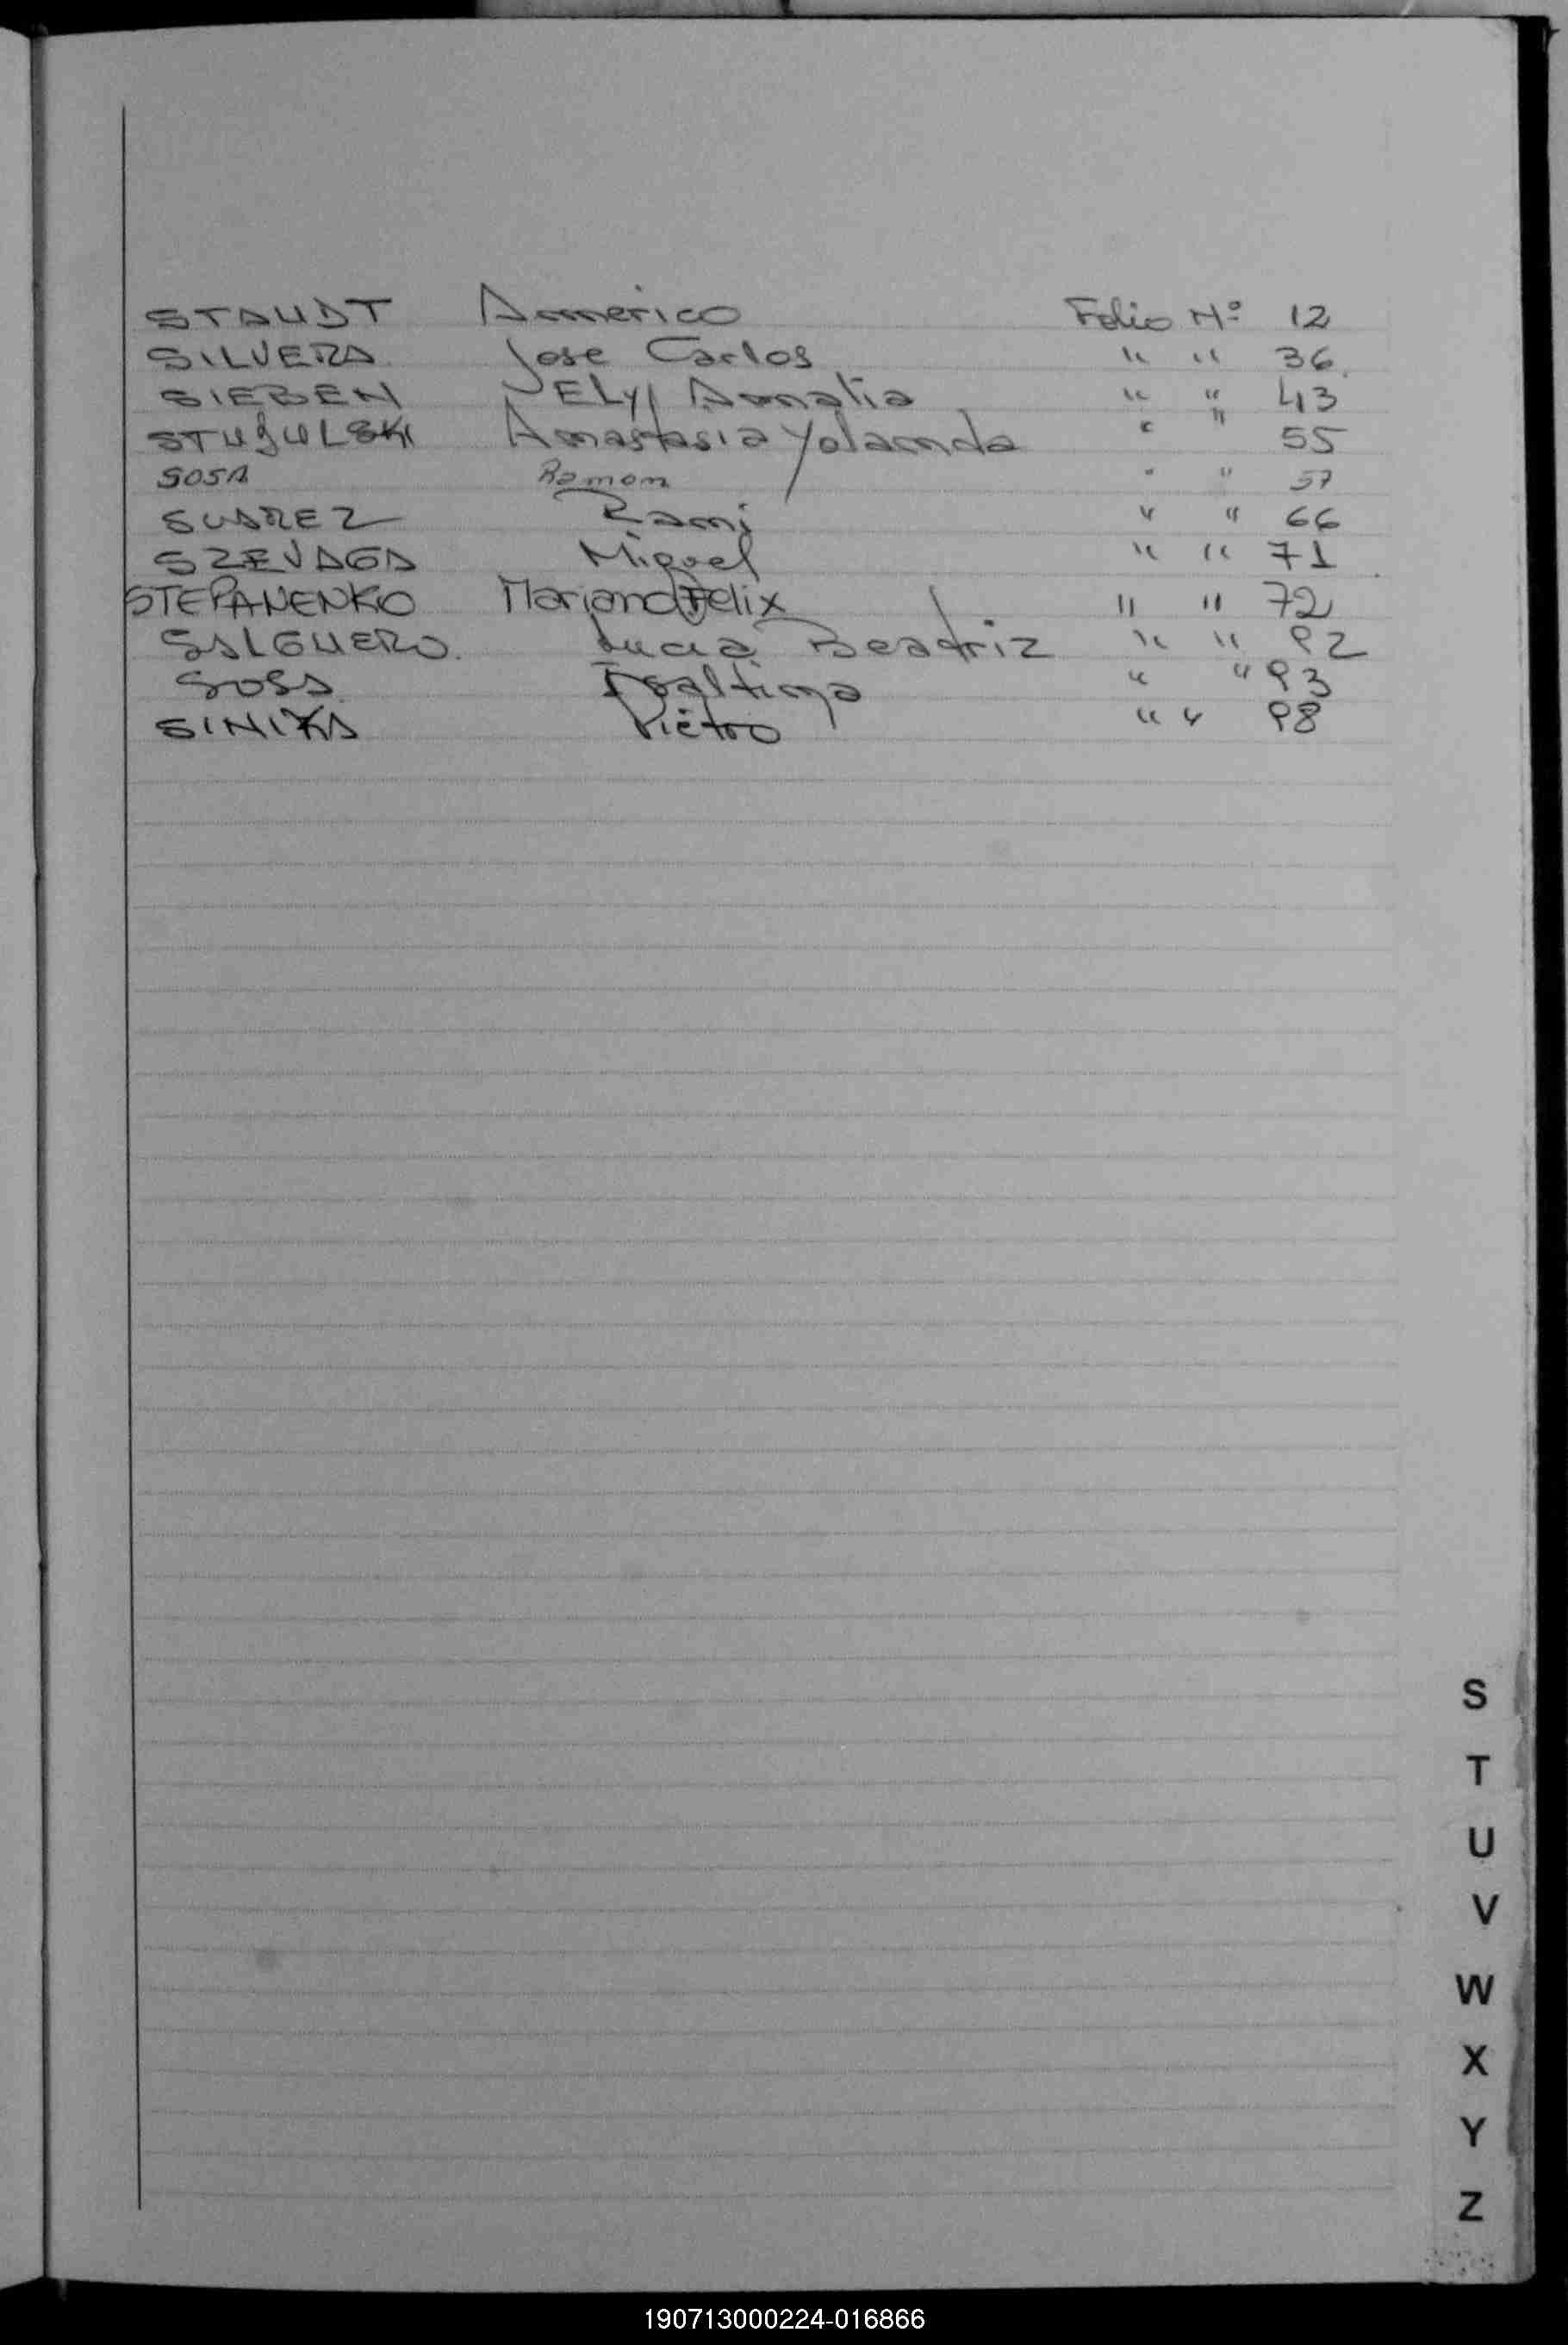 STAUDT Americo Folio Nº 12
SILVERA Jose Carlos " " 36
SIEBEN Ely Amalia " " 43
STUJULSKI Amastasia Yolanda " " 55
SOSA Ramon " " 57
SUAREZ Rami " " 66
SZEVAGA Miguel " " 71
STEPANENKO Mariano Felix " " 72
SALGUERO Lucia Beatriz " " 92
SOSA " " 93
SINIKA Pietro " " 98
S
T
U
V
W
X
Y
Z
190713000224-016866